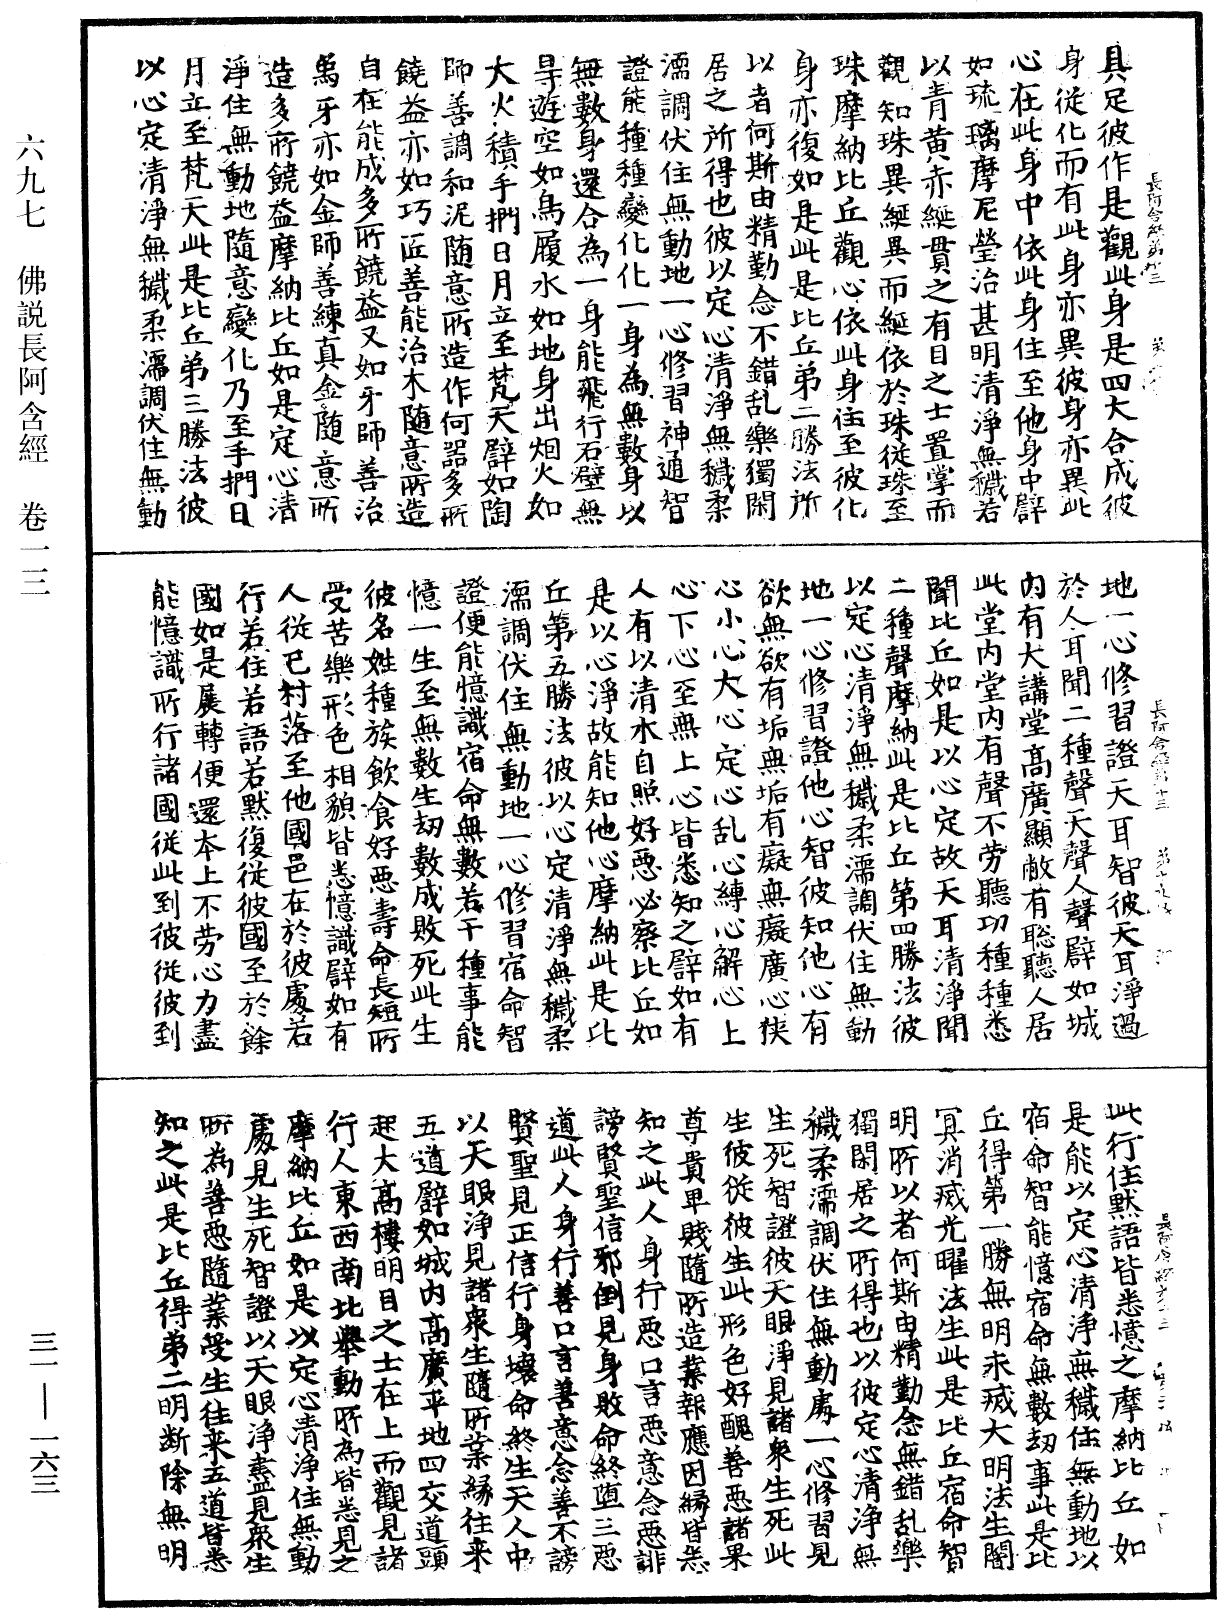 具足彼作是觀此身是四大合成彼
身從化而有此身亦異彼身亦異此
心在此身中依此身住至他身中辟
如琉璃摩尼瑩治甚明清淨無穢若
以青黃赤綖貫之有目之士置掌而
觀知珠異綖異而綖依於珠從珠至
珠摩納比丘觀心依此身住至彼化
身亦復如是此是比丘第二勝法所
以者何斯由精勤念不錯乱樂獨閑
居之所得也彼以定心清淨無穢柔
濡調伏住無動地一心修習神通智
證能種種變化化一身為無數身以
無數身還合為一身能飛行石壁無
㝵遊空如鳥履水如地身出烟火如
大火積手捫日月立至梵天辟如陶
師善調和泥随意所造作何器多所
饒益亦如巧匠善能治木随意所造
自在能成多所饒益又如牙師善治
為牙亦如金師善練真金随意所
造多所饒益摩納比丘如是定心清
淨住無動地隨意變化乃至手捫日
月立至梵天此是比丘弟三勝法彼
以心定清淨無穢柔濡調伏住無動
地一心修習證天耳智彼天耳淨過
於人耳聞二種聲天聲人聲辟如城
內有大講堂高廣顯敞有聡聽人居
此堂內堂內有聲不劳聽功種種悉
聞比丘如是以心定故天耳清淨聞
二種聲摩納此是比丘第四勝法彼
以定心清淨無穢柔濡調伏住無動
地一心修習證他心智彼知他心有
欲無欲有垢無垢有癡無癡廣心狹
心小心大心定心乱心縛心解心上
心下心至無上心皆悉知之辟如有
人有以清水自照好惡必察比丘如
是以心淨故能知他心摩納此是比
丘第五勝法彼以心定清淨無穢柔
濡調伏住無動地一心修習宿命智
證便能憶識宿命無數若干種事能
憶一生至無數生刼數成敗死此生
彼名姓種族飲食好惡壽命長短所
受苦樂形色相貌皆悉憶識辟如有
人從己村落至他國邑在於彼處若
行若住若語若默復從彼國至於餘
國如是展轉便還本上不劳心力盡
能憶識所行諸國從此到彼從彼到
此行住默語皆悉憶之摩納比丘如
是能以定心清淨無穢住無動地以
宿命智能憶宿命無數刼事此是比
丘得第一勝無明永滅大明法生闇
冥消滅光曜法生此是比丘宿命智
明所以者何斯由精勤念無錯乱樂
獨閑居之所得也以彼定心清淨無
穢柔濡調伏住無動處一心修習見
生死智證彼天眼淨見諸衆生死此
生彼從彼生此形色好醜善惡諸果
尊貴卑賤隨所造業報應因緣皆悉
知之此人身行惡口言惡意念惡誹
謗賢聖信邪倒見身敗命終墮三惡
道此人身行善口言善意念善不謗
賢聖見正信行身壞命終生天人中
以天眼淨見諸衆生隨所業緣往来
五道辟如城內高廣平地四交道頭
起大高樓明目之士在上而觀見諸
行人東西南北舉動所為皆悉見之
摩納比丘如是以定心清淨住無動
處見生死智證以天眼淨盡見衆生
所為善惡隨業受生往来五道皆悉
知之此是比丘得弟二明断除無明
六九七 佛説長阿含經 卷一三
三一—一六三